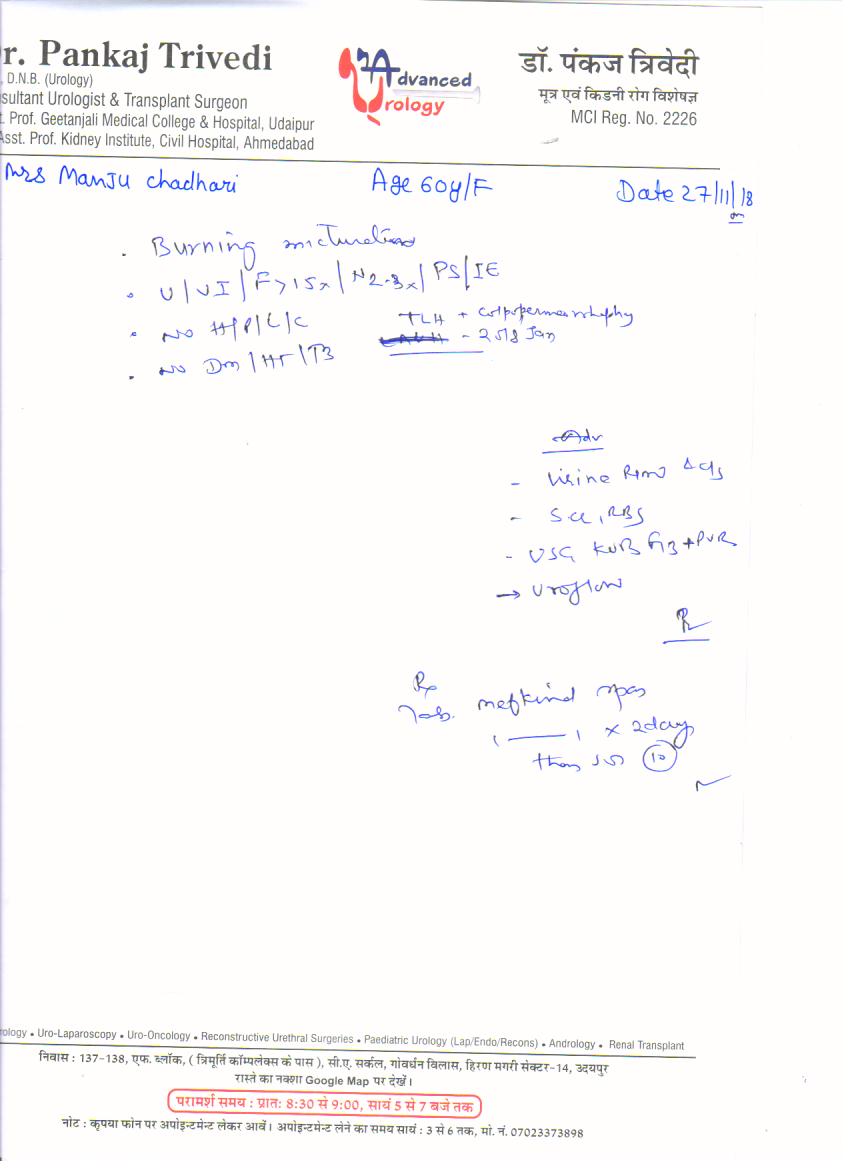 r. Pankaj Trivedi
D.N.B. (Urology)
sultant Urologist & Transplant Surgeon
t. Prof. Geetanjali Medical College & Hospital, Udaipur
Asst. Prof. Kidney Institute, Civil Hospital, Ahmedabad
Advanced
Urology
डॉ. पंकज त्रिवेदी
मूत्र एवं किडनी रोग विशेषज्ञ
MCI Reg. No. 2226
Mrs Manju Chadhari Age 60y/F Date 27/11/18
. Burning micturition
. U/UI/F>15x/N2-3x/PS/IE
. NO H/P/L/C
. NO Dm/HT/TB
TLH + colpoperineorrhaphy
- 2018 Jan
Adv
- Urine R/m c/s
- S.Cr, RBS
- USG KUB + PVR
→ Uroflow
Rx
Tab. mefkind spas
1 —— 1 x 2 days
then SOS 10
rology • Uro-Laparoscopy • Uro-Oncology • Reconstructive Urethral Surgeries • Paediatric Urology (Lap/Endo/Recons) • Andrology • Renal Transplant
निवास : 137-138, एफ. ब्लॉक, ( त्रिमूर्ति कॉम्पलेक्स के पास ), सी.ए. सर्कल, गोवर्धन विलास, हिरण मगरी सेक्टर-14, उदयपुर
रास्ते का नक्शा Google Map पर देखें।
परामर्श समय : प्रात: 8:30 से 9:00, सायं 5 से 7 बजे तक
नोट : कृपया फोन पर अपोइन्टमेन्ट लेकर आवें। अपोइन्टमेन्ट लेने का समय सायं : 3 से 6 तक, मो. नं. 07023373898